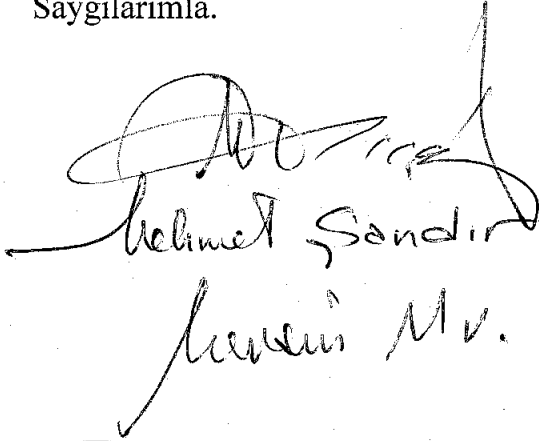 Saygılarımla.
Mehmet Şandır
Mersin Mv.